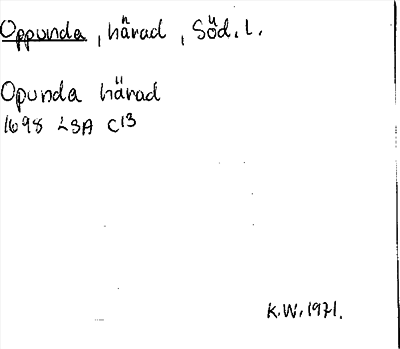 Oppunda, härad, Söd. l.
Opunda härad
1698 LSA C13
K.W. 1971.